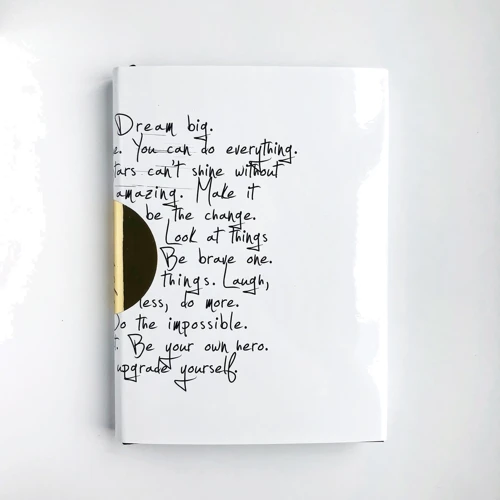 Dream big.
e. You can do everything.
tars can't shine without
amazing. Make it
be the change.
Look at things
Be brave one.
things. Laugh,
less, do more.
Do the impossible.
Be your own hero.
upgrade yourself.